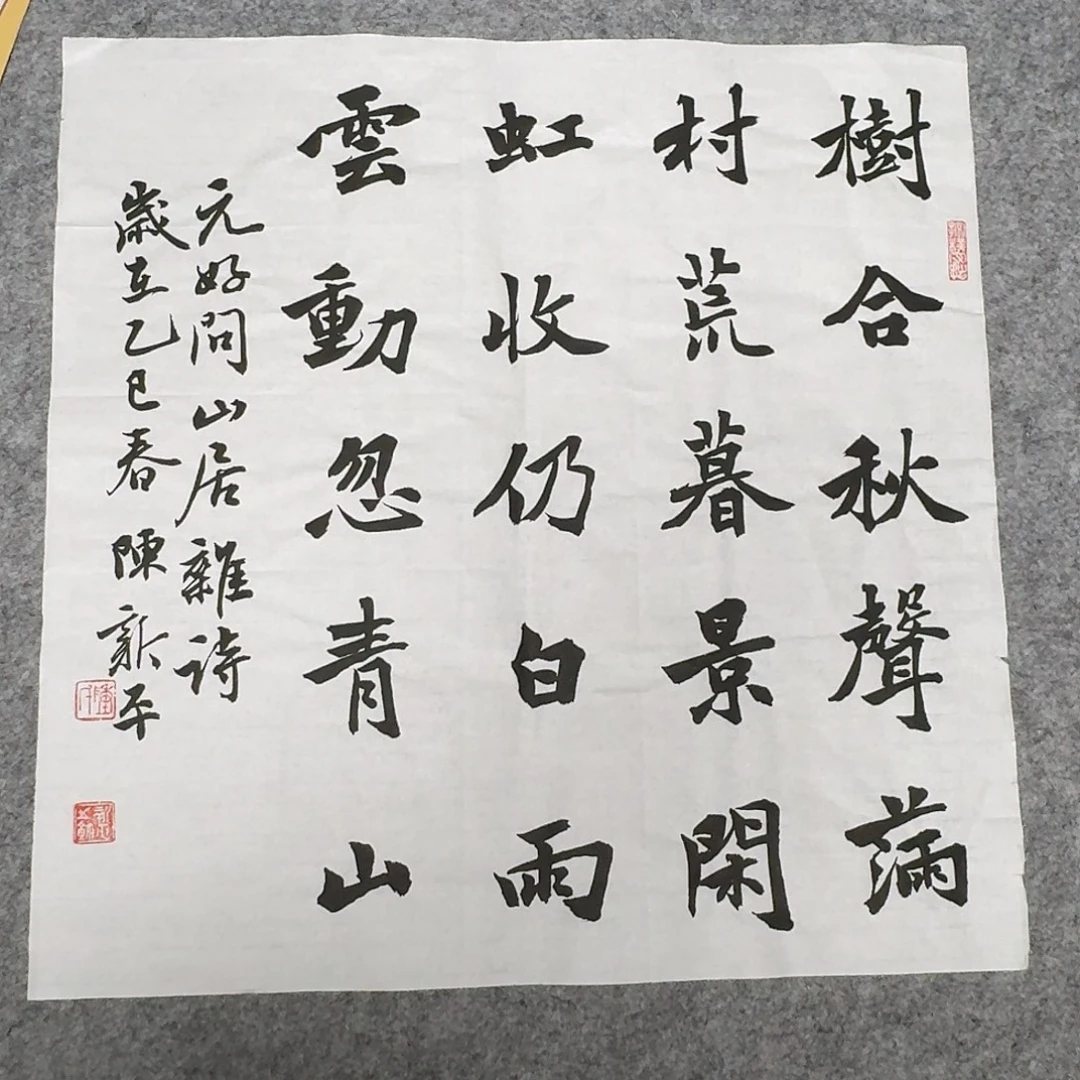 樹合秋聲滿
村荒暮景閑
虹收仍白雨
雲動忽青山
元好問山居雜詩
歲在乙巳春陳新平